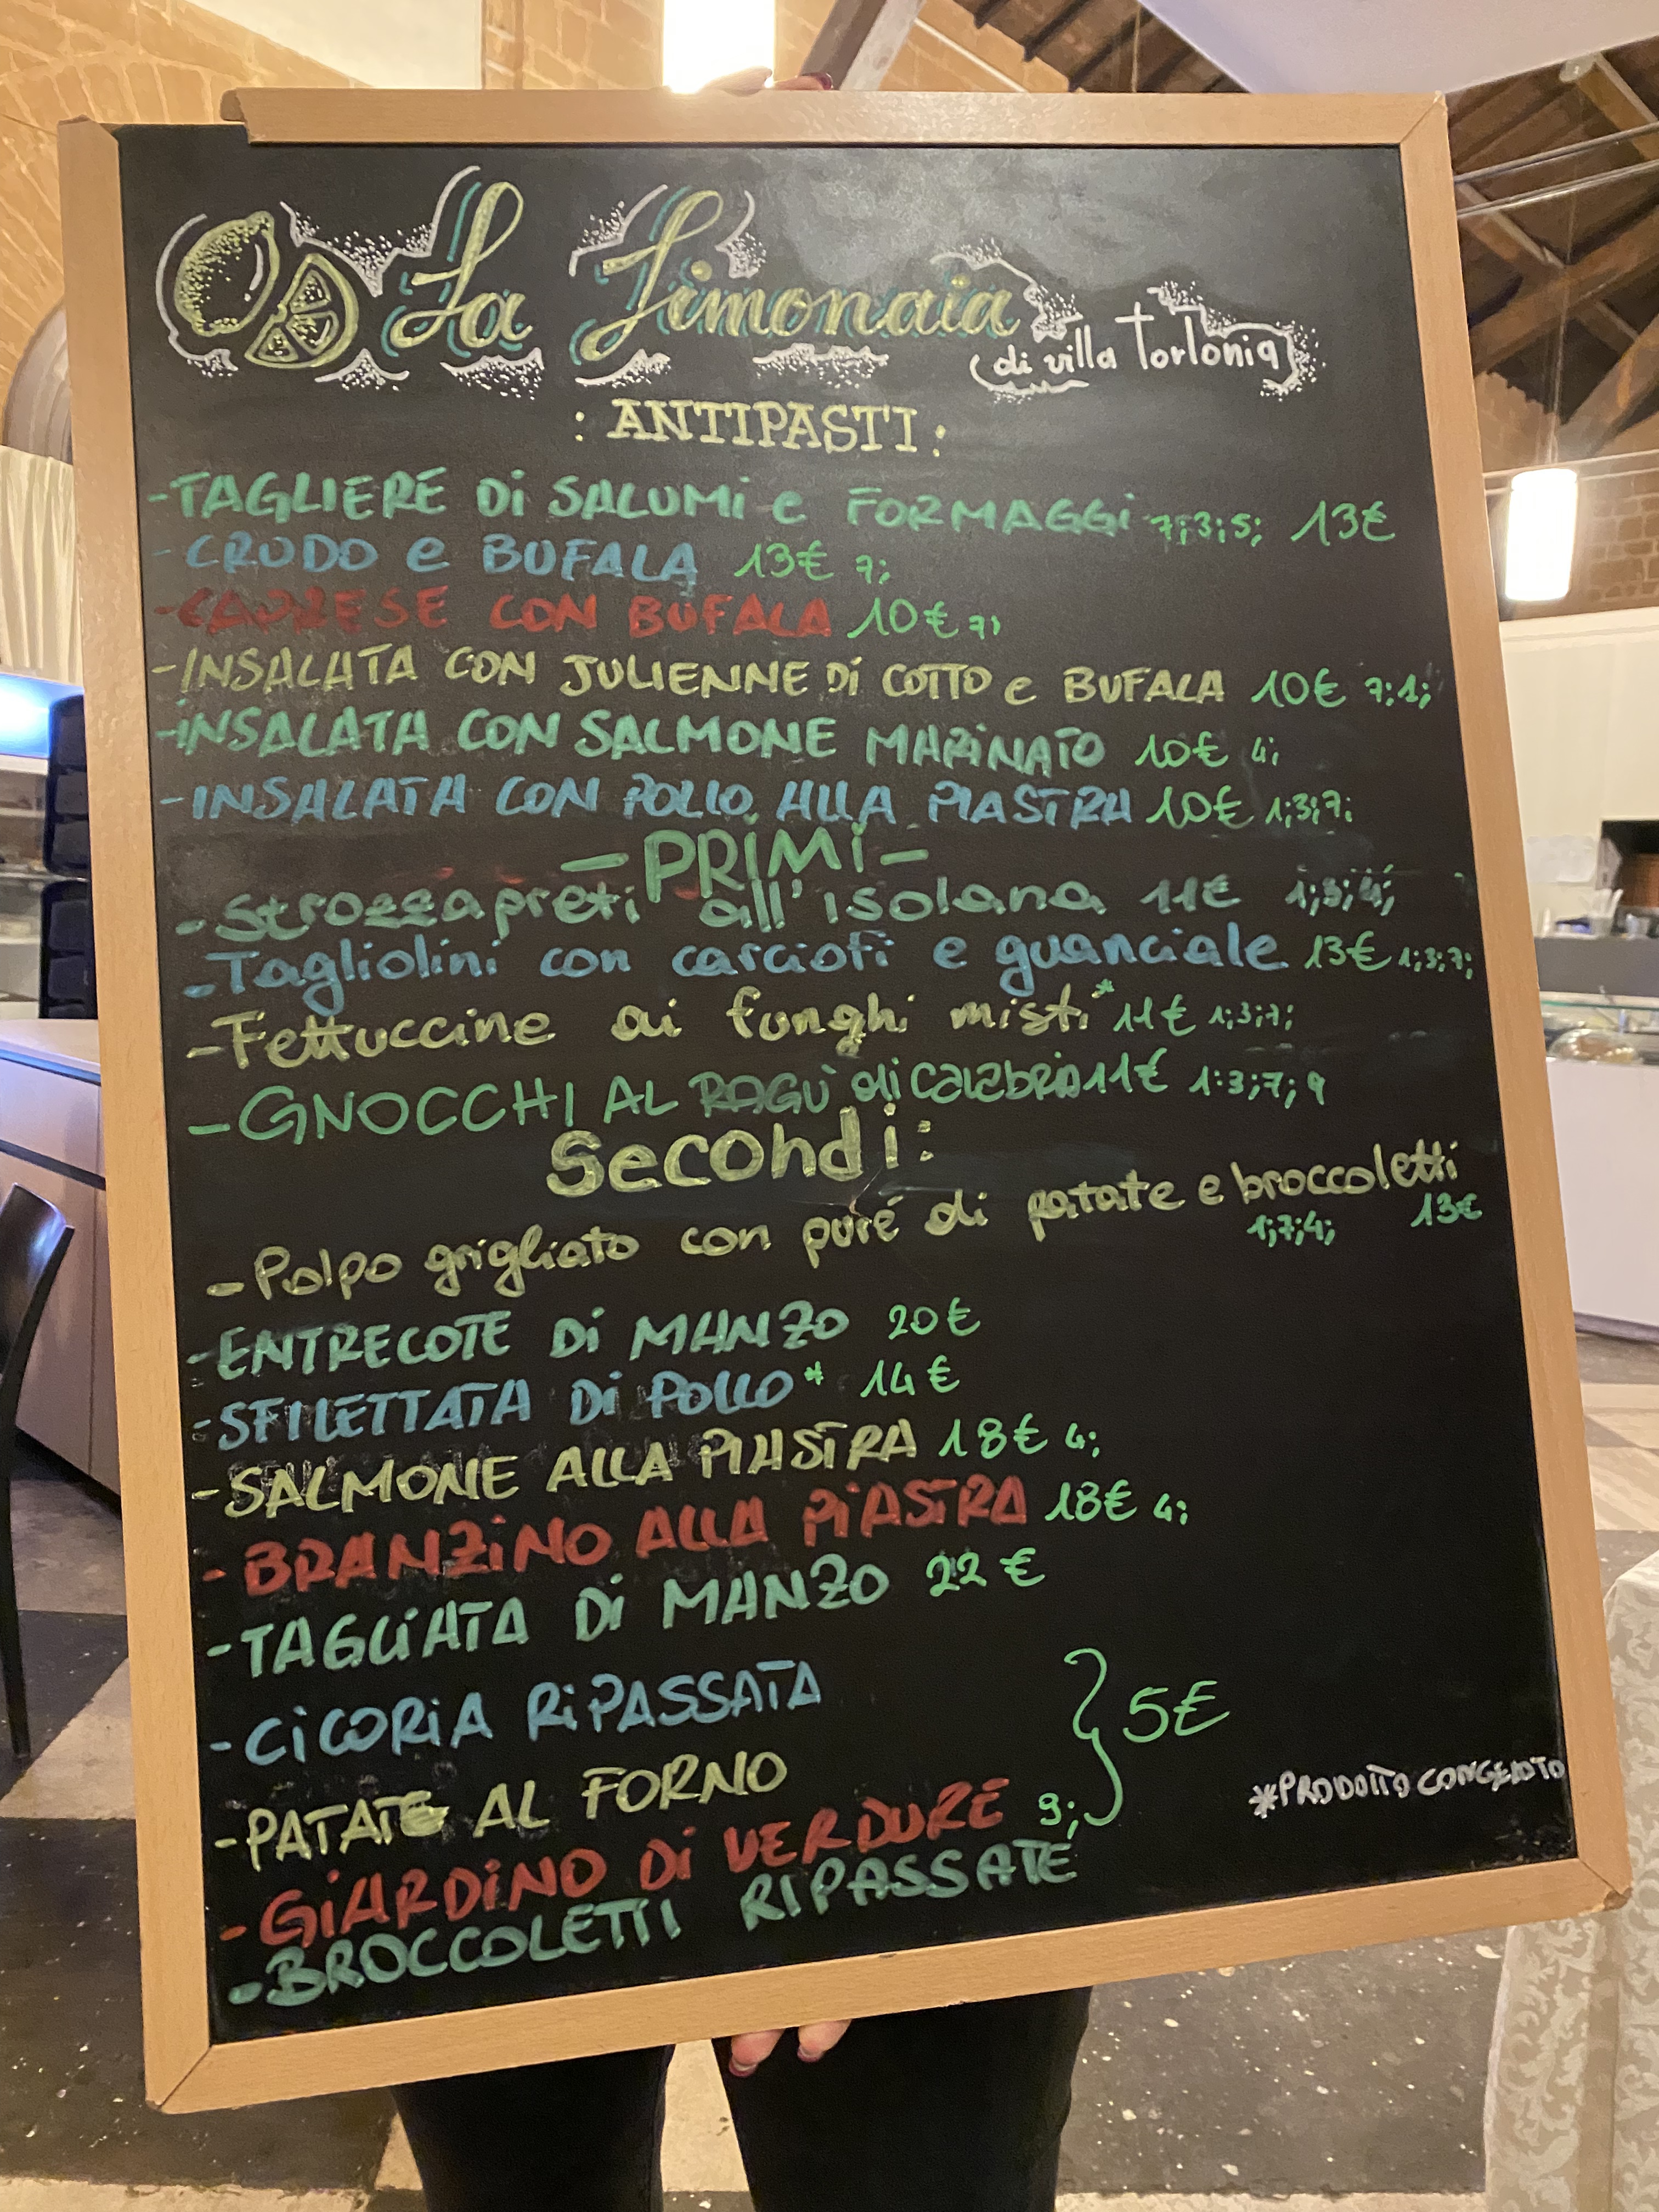 La Limonaia
(di villa Torlonia)
: ANTIPASTI :
- TAGLIERE Di SALUMi e FORMAGGi 7;3;5; 13€
- CRUDO e BUFALA 13€ 7;
- CAPRESE CON BUFALA 10€ 7;
- INSALATA CON JULIENNE Di COTTO e BUFALA 10€ 7;1;
- INSALATA CON SALMONE MARiNATO 10€ 4;
- INSALATA CON POLLO ALLA PIASTRA 10€ 1;3;7;
- PRiMi -
- Strozzapreti all'isolana 11€ 1;3;4;
- Tagliolini con carciofi e guanciale 13€ 1;3;7;
- Fettuccine ai funghi misti* 11€ 1;3;7;
- GNOCCHI AL RAGÙ di CoNzbRo 11€ 1:3;7;9
Secondi:
- Polpo grigliato con puré di patate e broccoletti
1;7;4; 13€
- ENTRECOTE Di MANZO 20€
- SFILETTATA Di POLLO* 14€
- SALMONE ALLA PIASTRA 18€ 4;
- BRANZiNO ALLA PiASTRA 18€ 4;
- TAGLiATA Di MANZO 22€
- CiCORiA RiPASSATA
- PATATE AL FORNO
5€
- GiARDiNO Di VERDURE 9;
- BROCCOLETTI RIPASSATE
*PRODOTTO CONGELATO